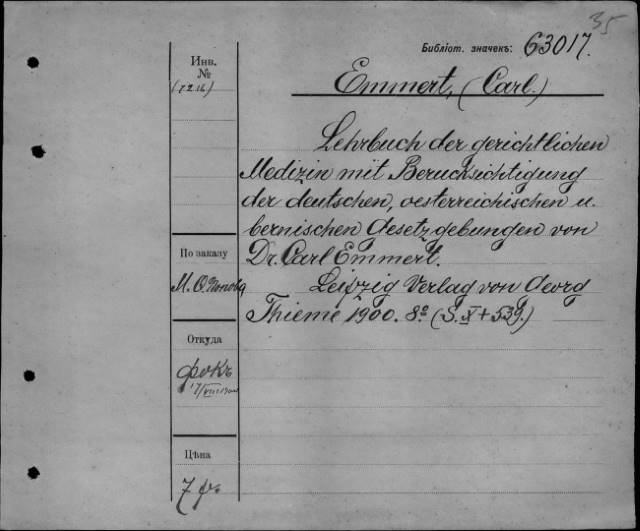 35
Библіот. значекъ: 63017.
Emmert, (Carl.)
Инв.
№
Lehrbuch der gerichtlichen
Medizin mit Berucksichtigung
der deutschen, oesterreichischen u.
bernischen Gesetzgebungen von
Dr. Carl Emmert.
Leipzig Verlag von Georg
Thieme 1900. 8º (S. X + 539.)
По заказу
М. О. Попова
Откуда
Фокъ
Цѣна
7